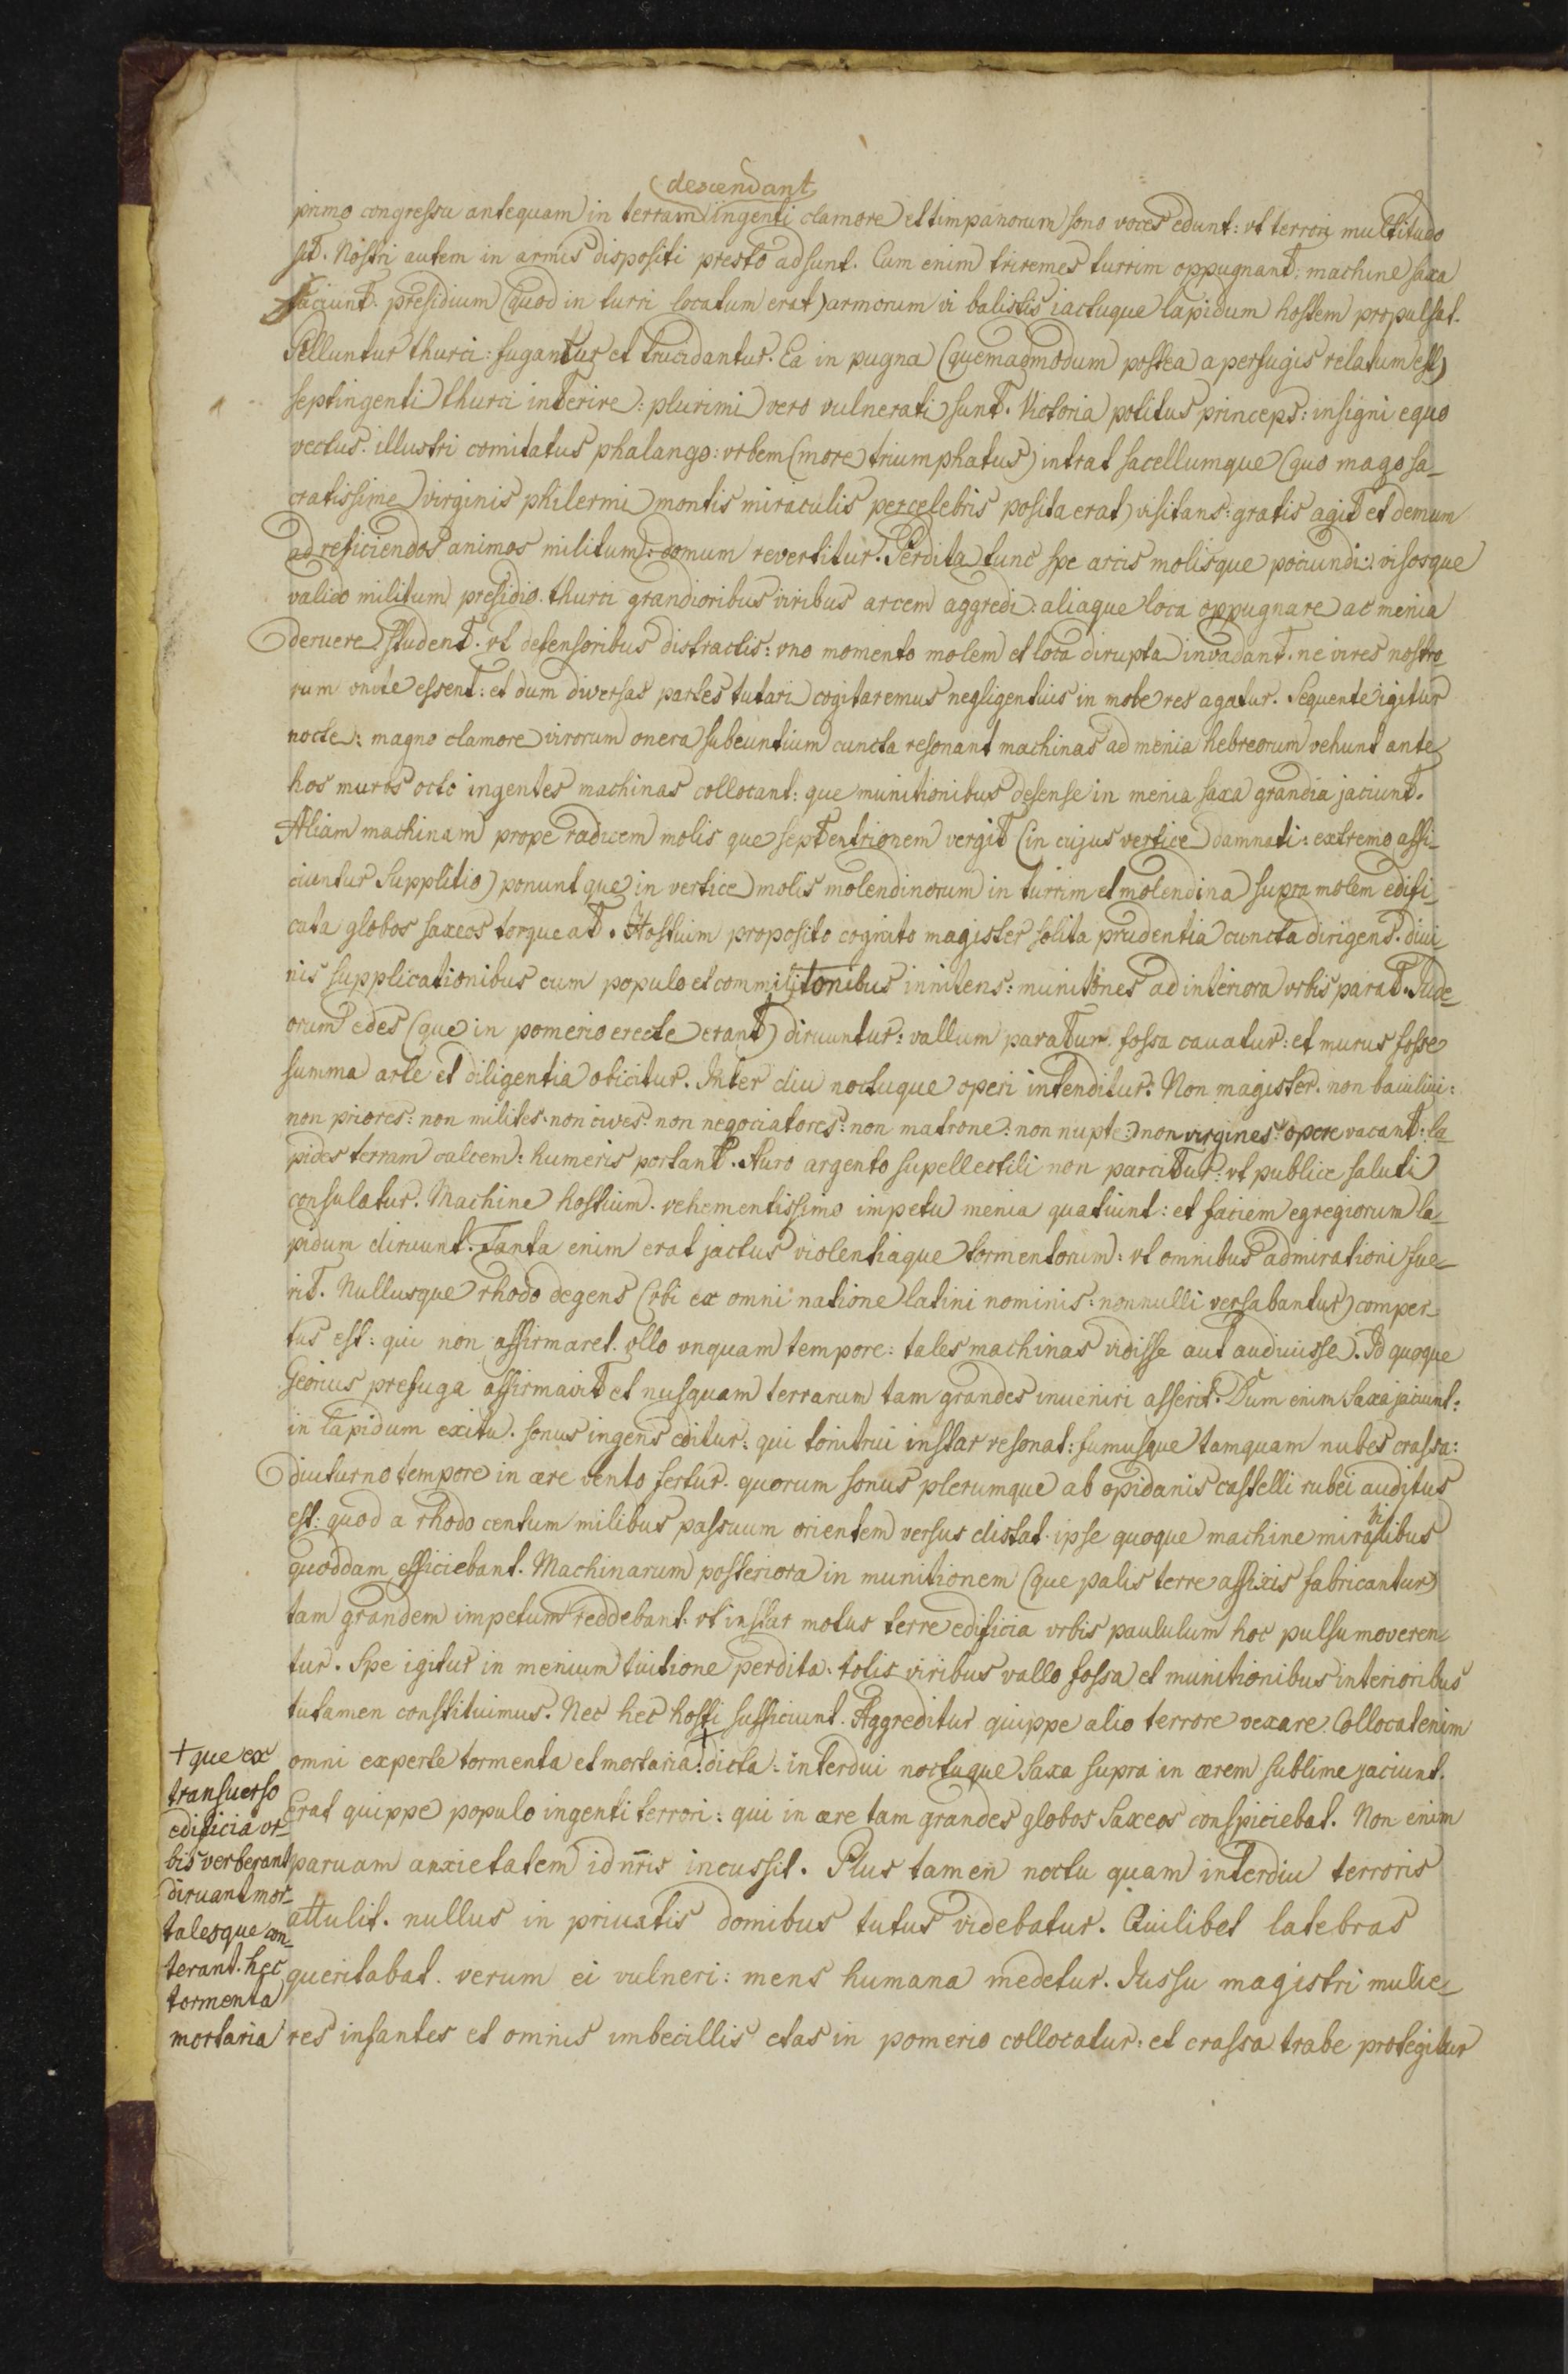 descendant
primo congressu antequam in terram ingenti clamore et timpanorum sono voces edunt: vt terrori multitudo
sit. Nostri autem in armis dispositi presto adsunt. Cum enim triremes turrim oppugnant: machine saxa
jaciunt. presidium (quod in turri locatum erat) armorum vi balistis iactuque lapidum hostem propulsat.
Pelluntur thurci: fugantur et trucidantur. Ea in pugna (quemadmodum postea a perfugis relatum est)
septingenti thurci interire: plurimi vero vulnerati sunt. Victoria politus princeps: insigni equo
vectus. illustri comitatus phalango: vrbem (more triumphatus) intrat sacellumque (quo mago sa-
cratissime virginis philermi montis miraculis percelebris posita erat) visitans: gratis agit et demum
ad reficiendos animos militum: domum revertitur. Perdita tunc spe arcis molisque pociundi: visosque
valido militum presidio. thurci grandioribus viribus arcem aggredi: aliaque loca oppugnare ac menia
deruere student. vt defensoribus distractis: vno momento molem et loca dirupta invadant. ne vires nostro-
rum vnite essent: et dum diversas partes tutari cogitaremus negligentius in mole res agatur. Sequente igitur
nocte: magno clamore virorum onera subeuntium cuncta resonant machinas ad menia hebreorum vehunt ante
hos muros octo ingentes machinas collocant: que munitionibus defense in menia saxa grandia jaciunt.
Aliam machinam prope radicem molis que septentrionem vergit (in cujus vertice damnati: extremo affi-
ciuntur Supplitio) ponunt que in vertice molis molendinorum in turrim et molendina supra molem edifi-
cata globos saxeos torqueat. Hostium proposito cognito magister solita prudentia cuncta dirigens. diui-
nis supplicationibus cum populo et commilitonibus innitens: munitones ad interiora vrbis parat. Jude-
orum edes (que in pomerio erecte erant) diruuntur: vallum paratur. fossa cauatur: et murus fosse
summa arte et diligentia obicitur. Inter diu noctuque operi intenditur. Non magister. non baiuliui:
non priores: non milites. non cives: non negociatores: non matrone: non nupte: non virgines: opere vacant: la-
pides terram calcem: humeris portant. Auro argento supellectili non parcitur: vt publice saluti
consulatur. Machine hostium. vehementissimo impetu menia quatiunt: et faciem egregiorum la-
pidum diruunt. Tanta enim erat jactus violentiaque tormentorum: vt omnibus admirationi fue-
rit. Nullusque rhodo degens (vbi ex omni natione latini nominis: nonnulli versabantur) comper-
tus est: qui non affirmaret. vllo vnquam tempore: tales machinas vidisse aut audiuisse. Id quoque
Georius prefuga affirmauit et nusquam terrarum tam grandes inueniri asserit. Dum enim Saxa jaciunt:
in lapidum exitu. sonus ingens editur: qui tonitrui instar resonat: fumusque tamquam nubes crassa:
diuturno tempore in ære vento fertur. quorum sonus plerumque ab opidanis castelli rubei auditus
est: quod a rhodo centum milibus passuum orientem versus distat. ipse quoque machine mirabilibus
quoddam efficiebant. Machinarum posteriora in munitionem (que palis terre affixis fabricantur)
tam grandem impetum reddebant. vt instar motus terre edificia vrbis paululum hoc pulsu moveren-
tur. Spe igitur in menium tuitione perdita: totis viribus vallo fossa et munitionibus interioribus
tutamen constituimus. Nec hec hosti sufficiunt. Aggreditur quippe alio terrore vexare. Collocat enim
omni experte tormenta et mortaria + dicta: interdui noctuque Saxa supra in ærem sublime jaciunt.
Erat quippe populo ingenti terrori: qui in ære tam grandes globos Saxeos conspiciebat. Non enim
paruam anxietatem id nr̄is incussit. Plus tamen noctu quam interdiu terroris
attulit. nullus in priuatis domibus tutus videbatur. Quilibet latebras
queritabat. verum ei vulneri: mens humana medetur. Jussu magistri mulie-
res infantes et omnis imbecillis etas in pomerio collocatur: et crassa trabe protegitur
+ que ex
transuerso
edificia vr-
bis verberant
diruant mor-
talesque con-
terant. hec
tormenta
mortaria